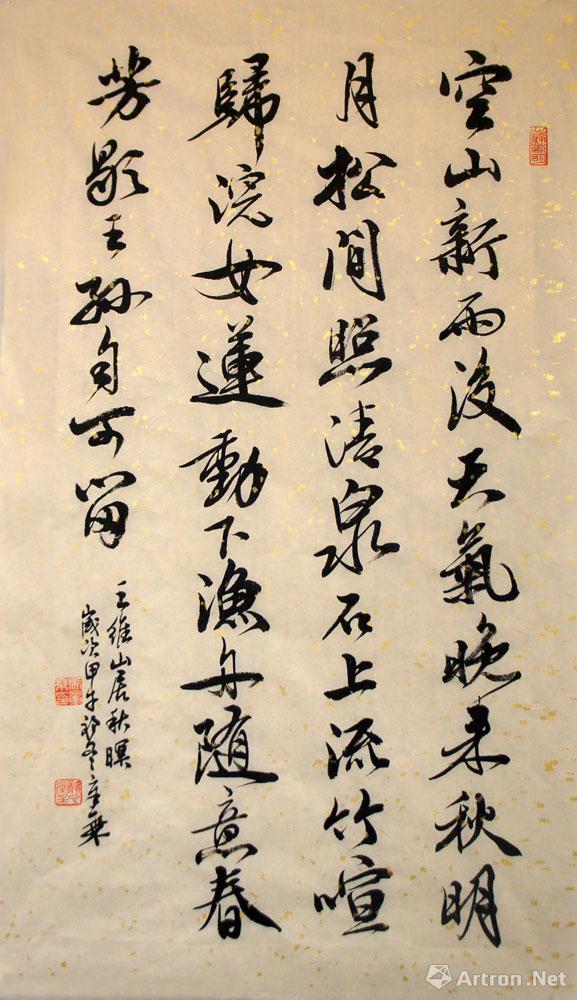 空山新雨後天氣晚来秋明
月松間照清泉石上流竹喧
歸浣女蓮動下漁舟随意春
芳歇王孫自可留
王維山居秋暝
歲次甲午
Artron.Net